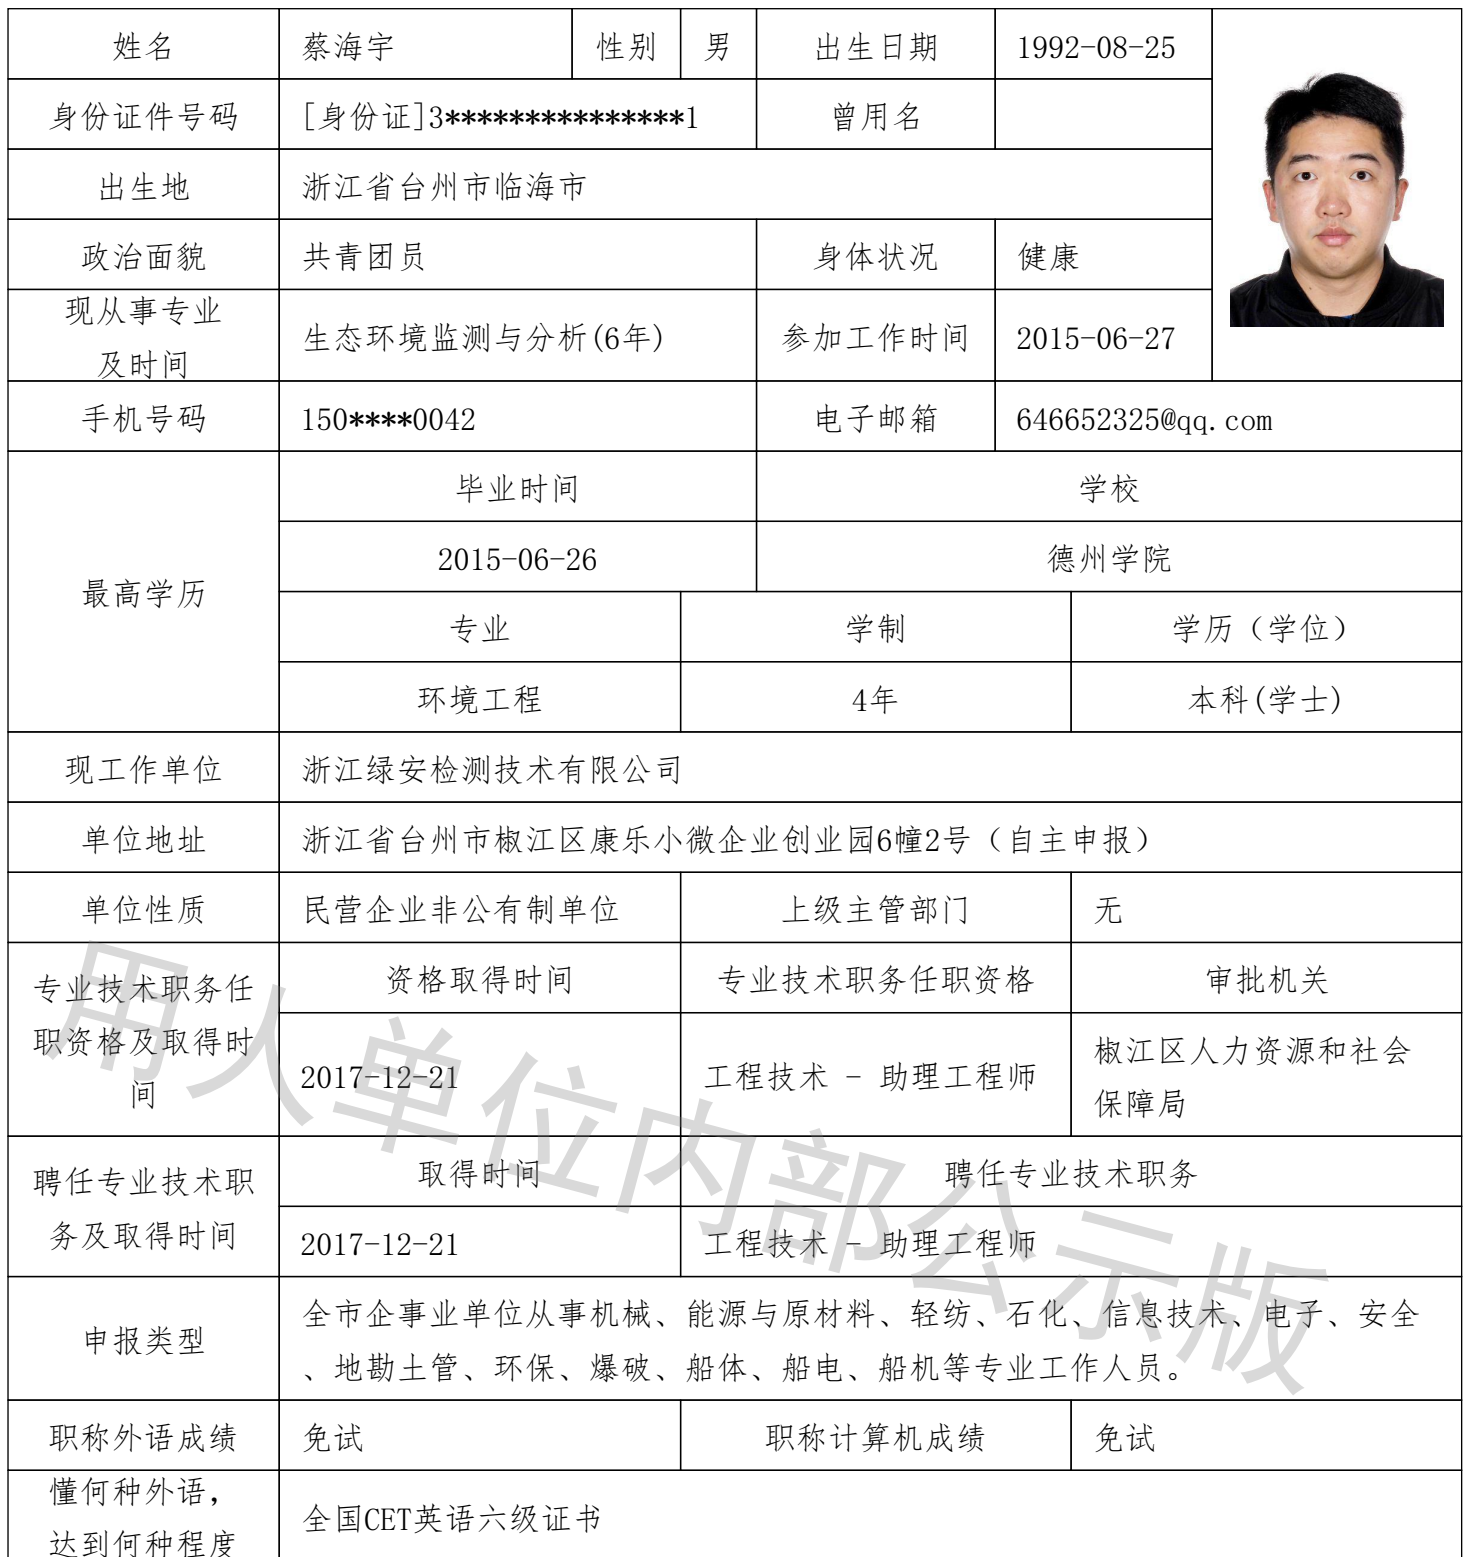 姓名 蔡海宇 性别 男 出生日期 1992-08-25
身份证件号码 [身份证]3***************1 曾用名
出生地 浙江省台州市临海市
政治面貌 共青团员 身体状况 健康
现从事专业
及时间
生态环境监测与分析(6年) 参加工作时间 2015-06-27
手机号码 150****0042 电子邮箱 646652325@qq.com
最高学历
毕业时间 学校
2015-06-26 德州学院
专业 学制 学历（学位）
环境工程 4年 本科(学士)
现工作单位 浙江绿安检测技术有限公司
单位地址 浙江省台州市椒江区康乐小微企业创业园6幢2号（自主申报）
单位性质 民营企业非公有制单位 上级主管部门 无
专业技术职务任
职资格及取得时
间
资格取得时间 专业技术职务任职资格 审批机关
2017-12-21 工程技术 - 助理工程师 椒江区人力资源和社会
保障局
聘任专业技术职
务及取得时间
取得时间 聘任专业技术职务
2017-12-21 工程技术 - 助理工程师
申报类型
全市企事业单位从事机械、能源与原材料、轻纺、石化、信息技术、电子、安全
、地勘土管、环保、爆破、船体、船电、船机等专业工作人员。
职称外语成绩 免试 职称计算机成绩 免试
懂何种外语，
达到何种程度
全国CET英语六级证书
用人单位内部公示版